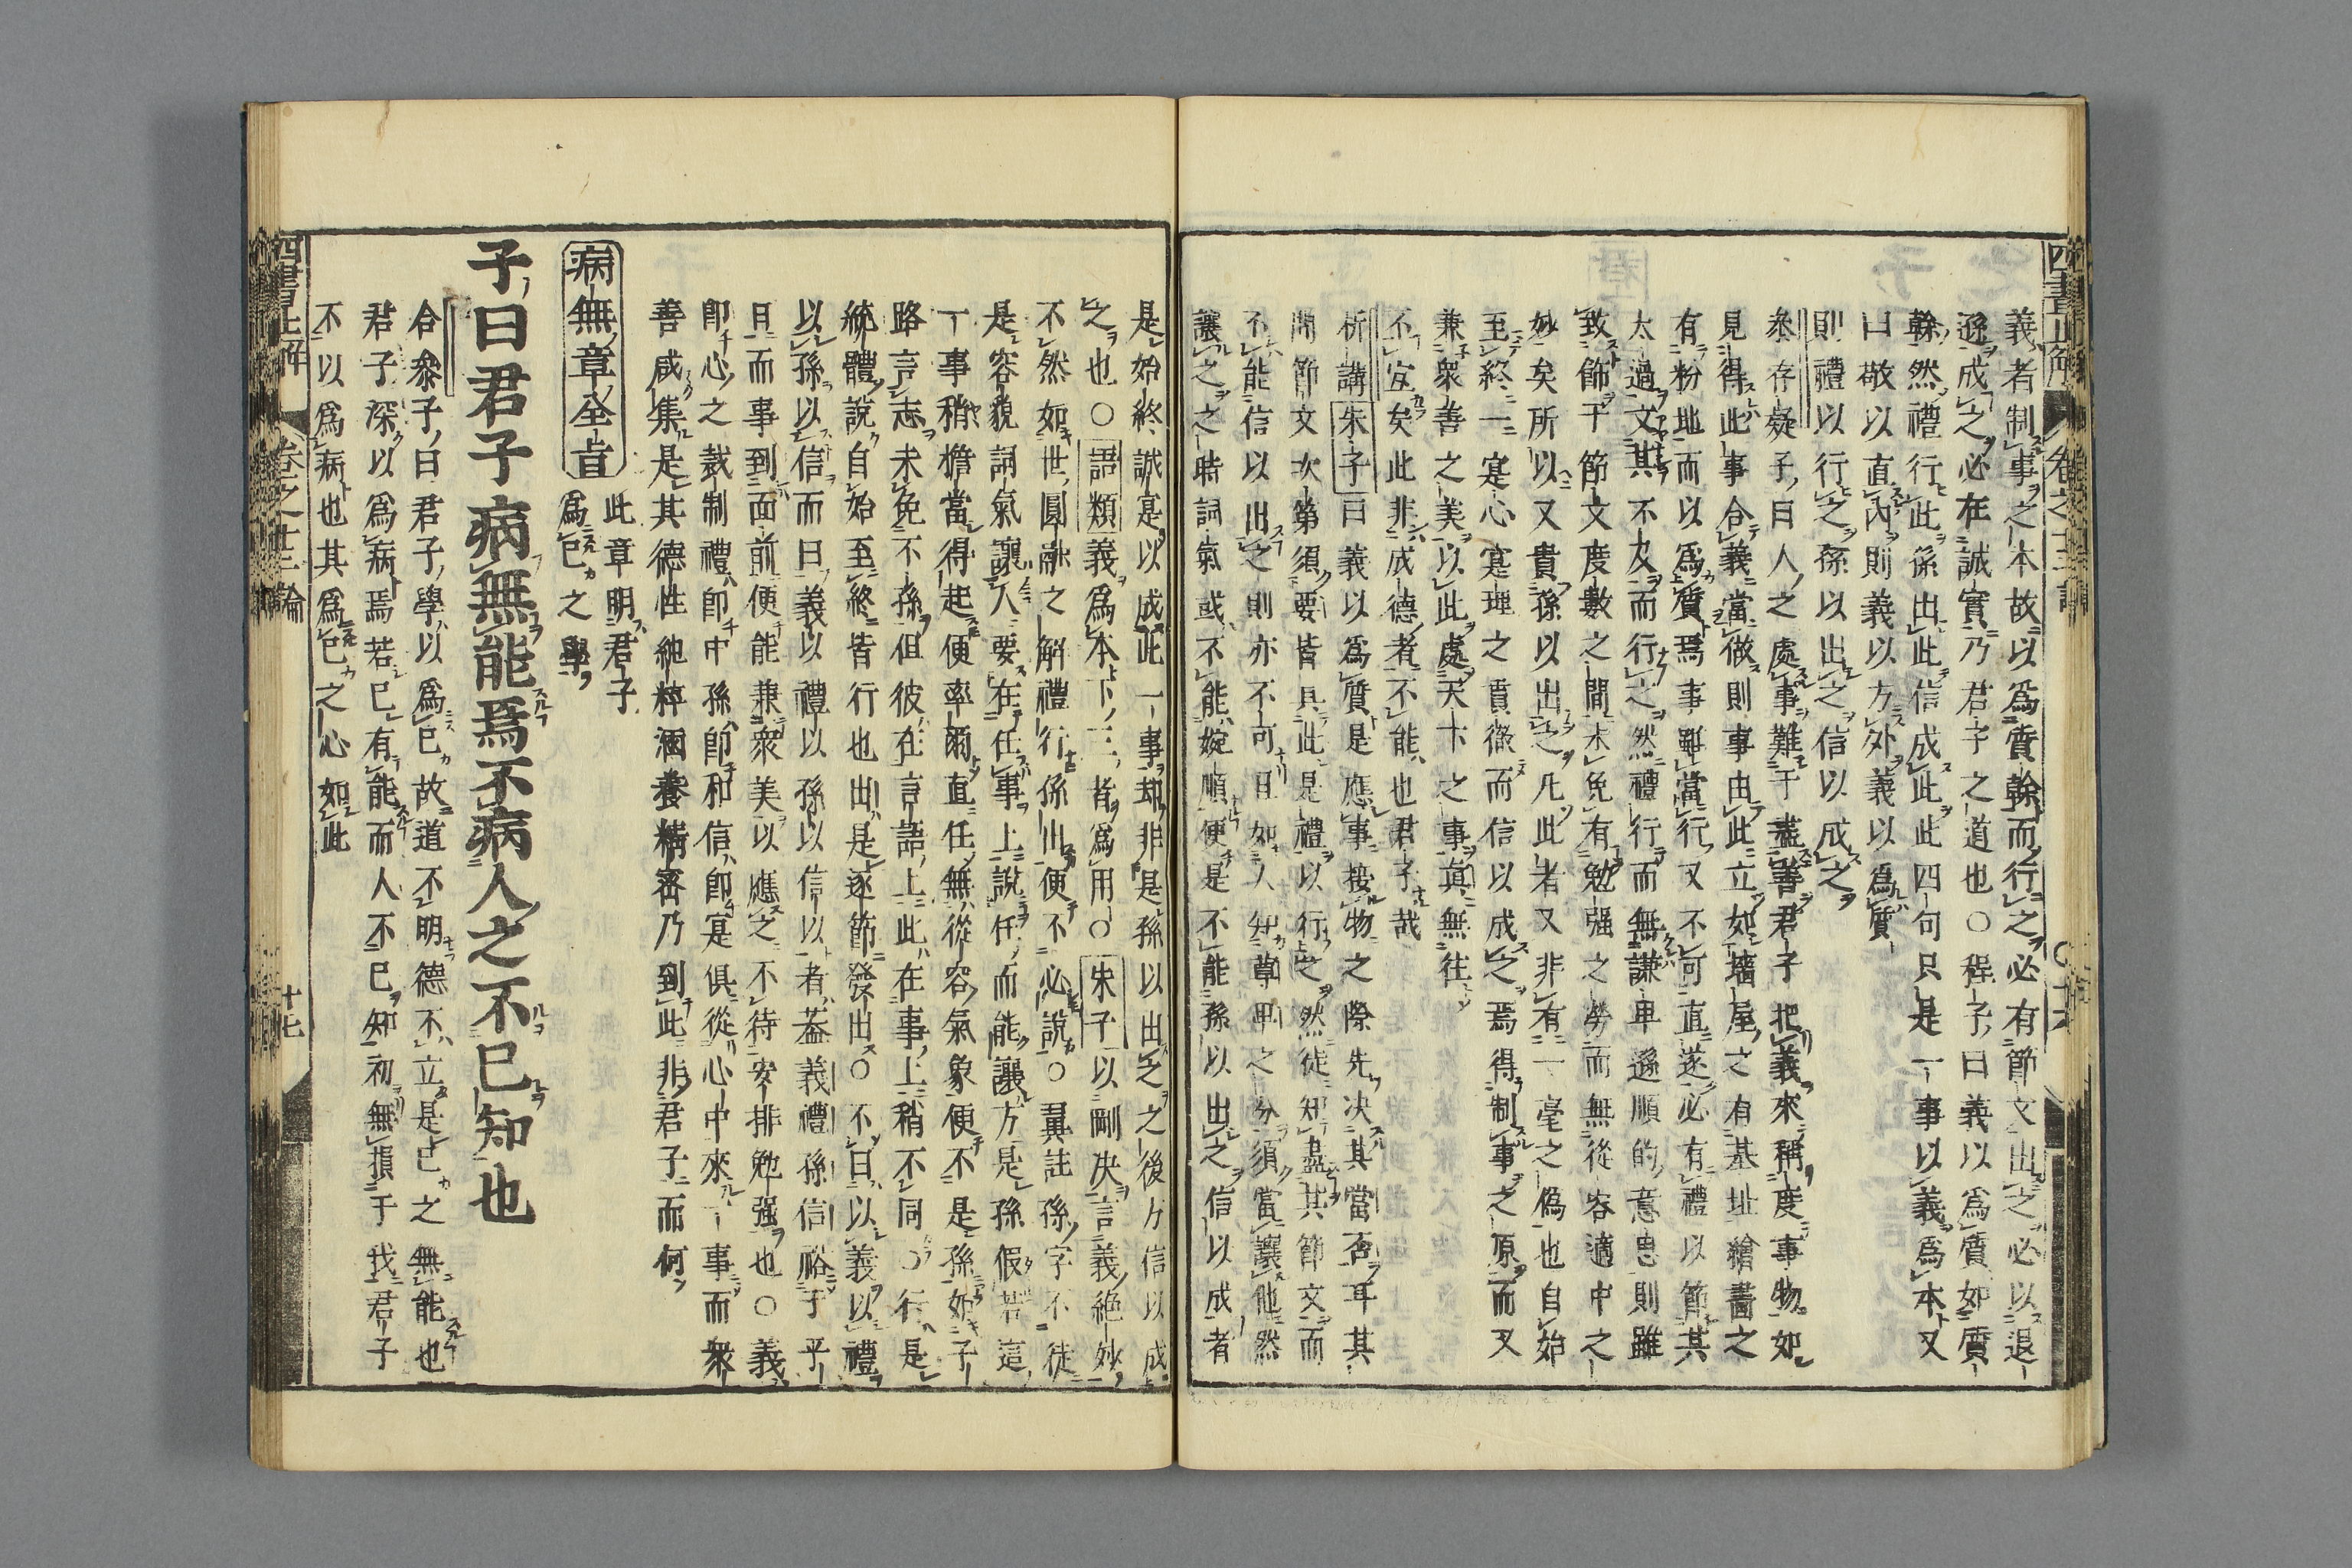 義者制事之本故以爲質幹而行之必有節文出之必以退
遜成之必在誠實乃君子之道也○程子曰義以爲質如質
幹然禮行此孫出此信成此此四句只是一事以義爲本又
曰敬以直內則義以方外義以爲質
則禮以行之孫以出之信以成之
參存疑子曰人之處事難于盡善君子把義來稱度事物如
見得此事合義當做則事由此立如墻屋之有基址繪畵之
有粉地而以爲質焉事雖當行又不可直遂必有禮以節其
太過文其不及而行之然禮行而無謙卑遜順的意思則雖
致飾于節文度數之間未免有勉强之勞而無從容適中之
妙矣所以又貴孫以出之凡此者又非有一毫之僞也自始
至終一寔心寔理之貫徹而信以成之焉得制事之原而又
兼衆善之美以此處天下之事眞無往
不宜矣此非成德者不能也君子哉
析講朱子曰義以爲質是應事接物之際先决其當否耳其
間節文次第須要皆具此是禮以行之然徒知盡其節文而
不能信以出之則亦不可且如人知尊卑之分須當讓他然
讓之之時詞氣或不能婉順便是不能孫以出之信以成者
是始終誠寔以成此一事却非是孫以出之之後方信以成
之也○語類義爲本下三者爲用○朱子以剛决言義絶妙
不然如世圓融之解禮行孫出便不必說○翼註孫字不徒
是容貌詞氣讓人要在任事上說任而能讓方是孫假若這
丁事稍擔當得起便率爾直任無從容氣象便不是孫如子
路言志未免不孫但彼在言語上此在事上稍不同○行是
統體說自始至終皆行也出是逐節發出○不曰以義以禮
以孫以信而曰義以禮以孫以信以者蓋義禮孫信裕于平
日而事到面前便能兼衆美以應之不待安排勉强也○義
卽心之裁制禮卽中孫卽和信卽寔俱從心中來一事而衆
善咸集是其德性純粹涵養精密乃到此非君子而何
病無章全旨
此章明君子
爲己之學
子曰君子病無能焉不病人之不已知也
合參子曰君子學以爲已故道不明德不立是已之無能也
君子深以爲病焉若已有能而人不已知初無損于我君子
不以爲病也其爲已之心如此
四書正解
卷之十三論
十七
四書正解
卷之十三論
十六